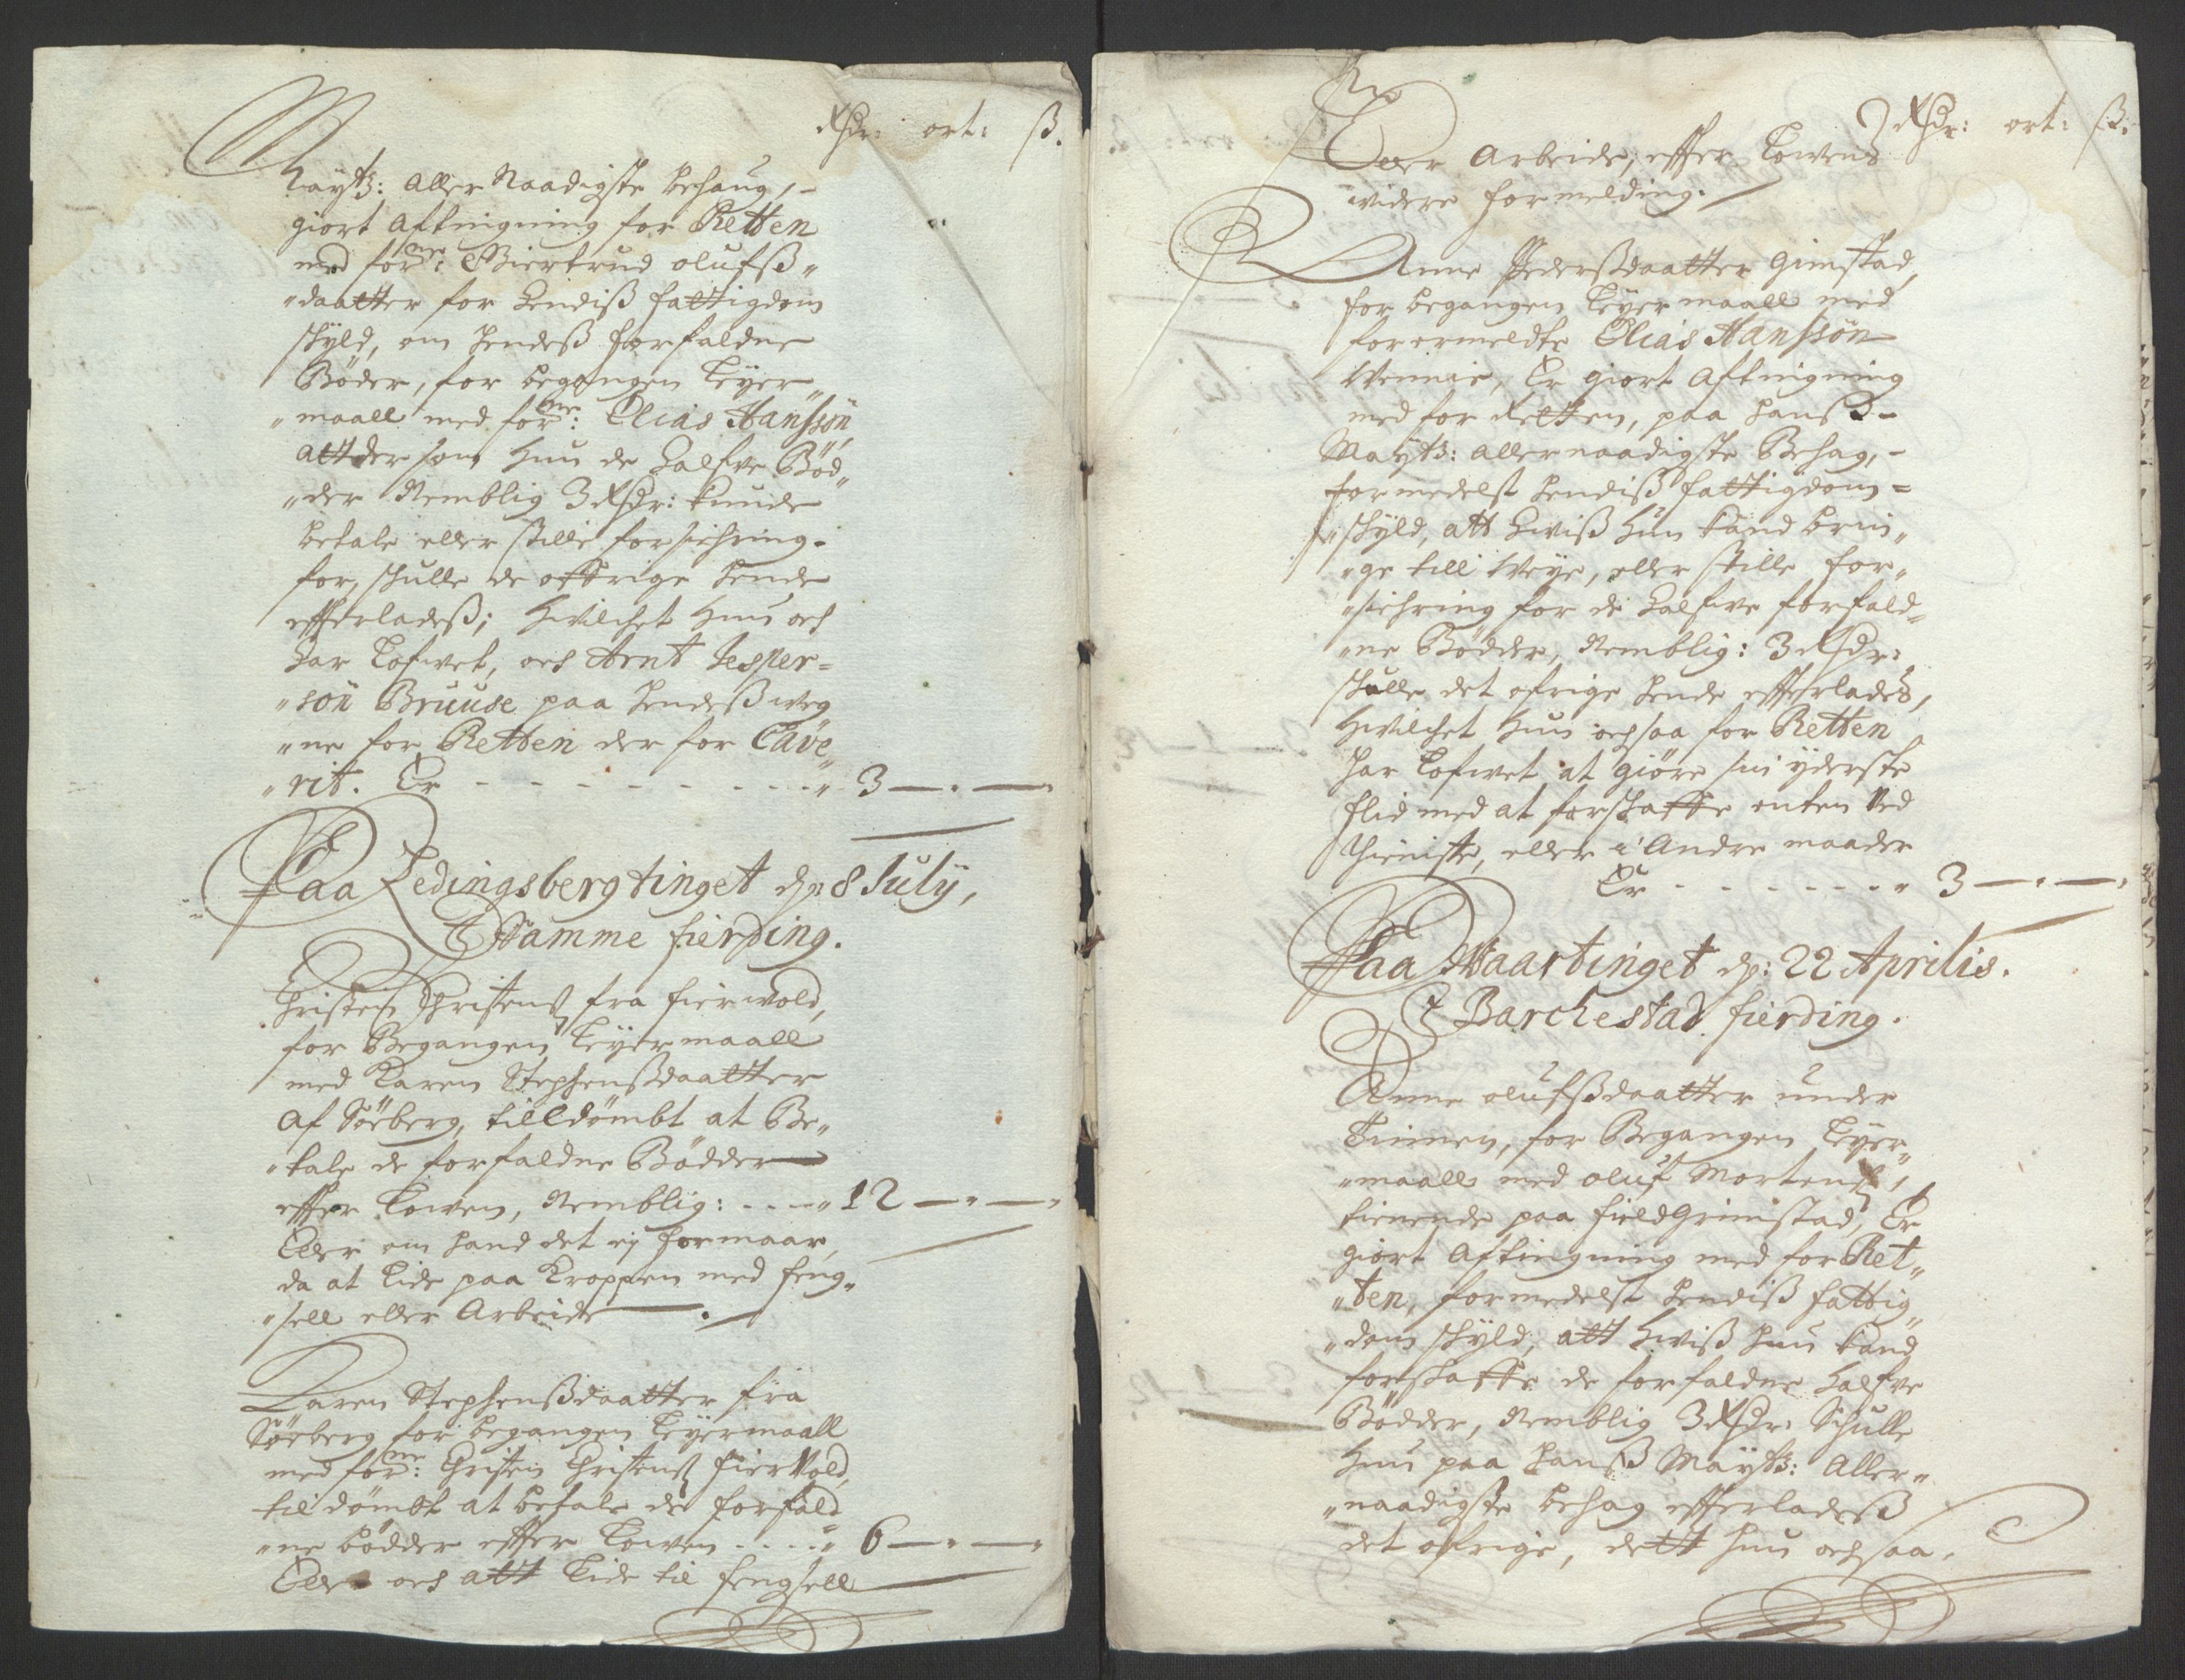 Rixdr: ort: ß.
Mayts: Aller Naadigste behaug, -
giort Aftingning for Retten
med forne: Giertrud olufß„
„daatter for hendiß fattigdom
skyld, om hendeß forfaldne
Bøder, for begangen Leyer„
„maall med forne: Elias Hanssøn,
att der som hun de halfve Bød„
„der Nemblig 3 Rixdr: kunde
betale eller stille forsichring.
for, skulle de offrige hende
efterladeß; hvilchet hun och
har lofvet, och Arnt Jesper=
„søn Bruuse paa hendeß weg
„ne for Retten der for Cave„
„rit. Er - - - - - - - - - „ 3 — „ — „
Paa Ledingsberg tinget dn: 8 July,
I Stamme fierding.
Christen Christenß fra fierwold,
for Begangen Leyermaall
med Karen Stephensßdaatter
af Sørberg, tilldømbt at Be„
„tale de forfaldne Bødder
effter Lowen, Nemblig: - - - „ 12 — „ — „
Eller om hand det ej formaar,
da at lide paa Kroppen med feng„
„sell eller Arbeide
Karen Stephenßdaatter fra
Sørberg for begangen Leyermaall
med forne: Christen Christenß fierWold,
til dømbt at betale de forfald
„ne bødder effter Lowen - - - - „ 6 — „ — „
Eller och att lide til fengsell
Rixdr: ort: ß.
Eller Arbeide, effter Lowens
widere formelding.
Anne Pederßdaatter Gimstad,
for begangen Leyermaall med
forermeldte Elias Hanssøn
Wennie, Er giort Aftingning
med for Retten, paa hanß -
Mayts: allernaadigste Behag, -
formedelst hendiß fattigdom=
„skyld, att hwiß hun kand brin„
„ge till Weye, eller stille for„
„sichring for de halfve forfald„
„ne Bødder, Nemblig: 3 Rixdr:
skulle det ofrige hende efterlades,
hwilchet hun ochsaa for Retten
har lofvet at giøre sin yderste
flid med at forskaffe enten Ved
thieniste, eller i Andre maader
Er - - - - - - - „ 3 — „ — „
Paa Waartinget dn: 22 Aprilis.
I Barchestad fierding.
Anne olufßdaatter under
Tinnen, for Begangen Leyer„
„maall med oluf Mortenß,
tienende paa fieldGrimstad, Er
giort Aftingning med for Ret„
„ten, formedelst hendiß fattig„
„dom skyld, att hwiß hun kand
forskaffe de forfaldne halfve
Bødder, Nemblig 3 Rixdr: Schulle
hun paa hanß Mayts: Aller„
„naadigste behag efterladeß
det ofrige, dett hun ochsaa.